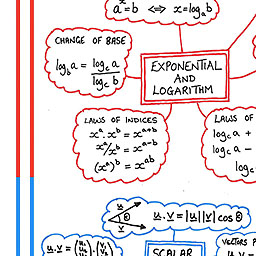 a^x = b <=> x = log_a b
CHANGE OF BASE
log_b a = log_c a / log_c b
EXPONENTIAL
AND
LOGARITHM
LAWS OF INDICES
x^a . x^b = x^{a+b}
x^a / x^b = x^{a-b}
(x^a)^b = x^{ab}
LAWS OF
log_c a +
log_c a -
log_c
u
θ
v
u . v = |u||v| cos θ
u . v = (u₁ u₂) . (v₁ v₂)
SCALAR
VECTORS